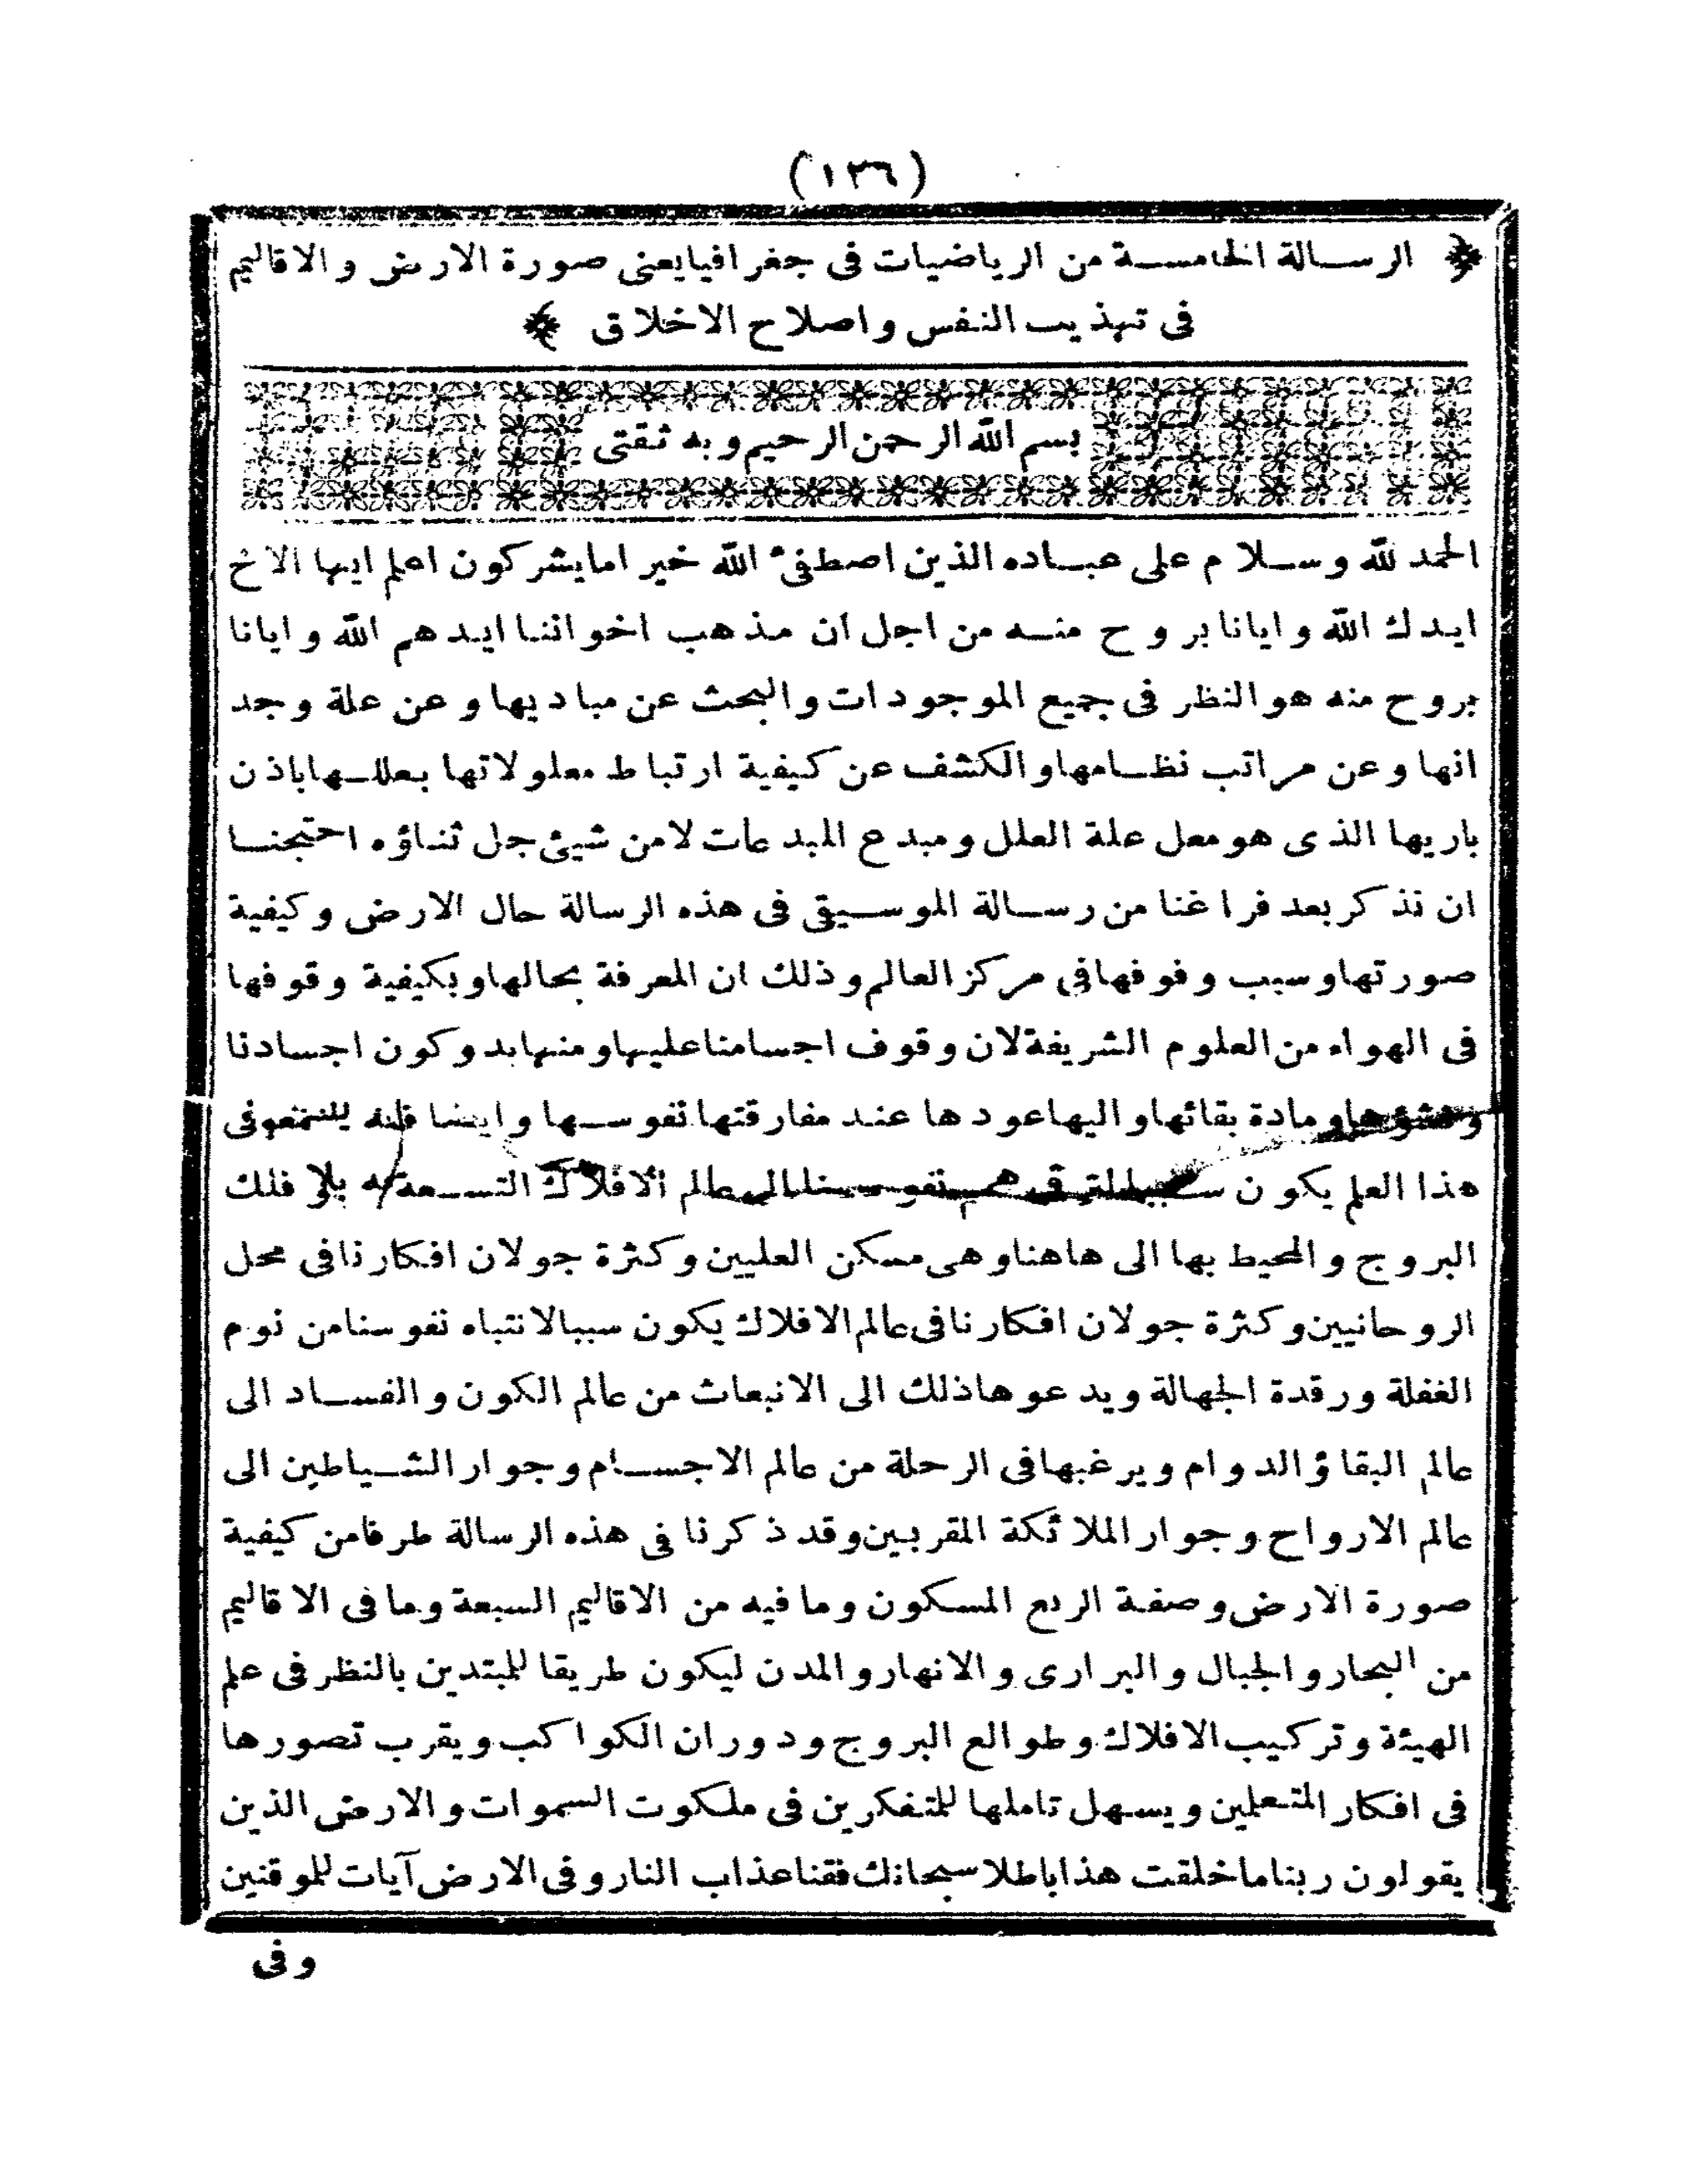 (١٣٦)
﴿ الرسالة الخامسة من الرياضيات فى جغرافيا يعنى صورة الارض والاقاليم
فى تهذيب النفس واصلاح الاخلاق ﴾
بسم الله الرحمن الرحيم وبه ثقتى
الحمد لله وسلام على عباده الذين اصطفىٰ الله خير امايشركون اعلم ايها الاخ
ايدك الله وايانا بروح منه من اجل ان مذهب اخواننا ايدهم الله وايانا
بروح منه هو النظر فى جميع الموجودات والبحث عن مباديها وعن علة وجد
انها وعن مراتب نظامها والكشف عن كيفية ارتباط معلولاتها بعللها باذن
باريها الذى هو معل علة العلل ومبدع المبدعات لامن شيئ جل ثناؤه احتجنا
ان نذكر بعد فراغنا من رسالة الموسيقى فى هذه الرسالة حال الارض وكيفية
صورتها وسبب وفوفها فى مركز العالم وذلك ان المعرفة بحالها وبكيفية وقوفها
فى الهواء من العلوم الشريفة لان وقوف اجسامنا عليها ومنها بدو كون اجسادنا
ومادة بقائها واليها عودها عند مفارقتها نفوسها وايضا فى
هذا العلم يكون نفوسنا الى عالم الافلاك التسعة فلك
البروج والمحيط بها الى هاهنا وهى مسكن العليين وكثرة جولان افكارنا فى محل
الروحانيين وكثرة جولان افكارنا فى عالم الافلاك يكون سببا لانتباه نفوسنا من نوم
الغفلة ورقدة الجهالة ويدعوها ذلك الى الانبعاث من عالم الكون والفساد الى
عالم البقاؤ الدوام ويرغبها فى الرحلة من عالم الاجسام وجوار الشياطين الى
عالم الارواح وجوار الملائكة المقربين وقد ذكرنا فى هذه الرسالة طرفا من كيفية
صورة الارض وصفة الربع المسكون وما فيه من الاقاليم السبعة وما فى الاقاليم
من البحار والجبال والبرارى والانهار والمدن ليكون طريقا للمبتدين بالنظر فى علم
الهيئة وتركيب الافلاك وطوالع البروج ودوران الكواكب ويقرب تصورها
فى افكار المتعلمين ويسهل تاملها للمتفكرين فى ملكوت السموات والارض الذين
يقولون ربنا ما خلقت هذا باطلا سبحانك فقنا عذاب النار وفى الارض آيات للموقنين
وفى